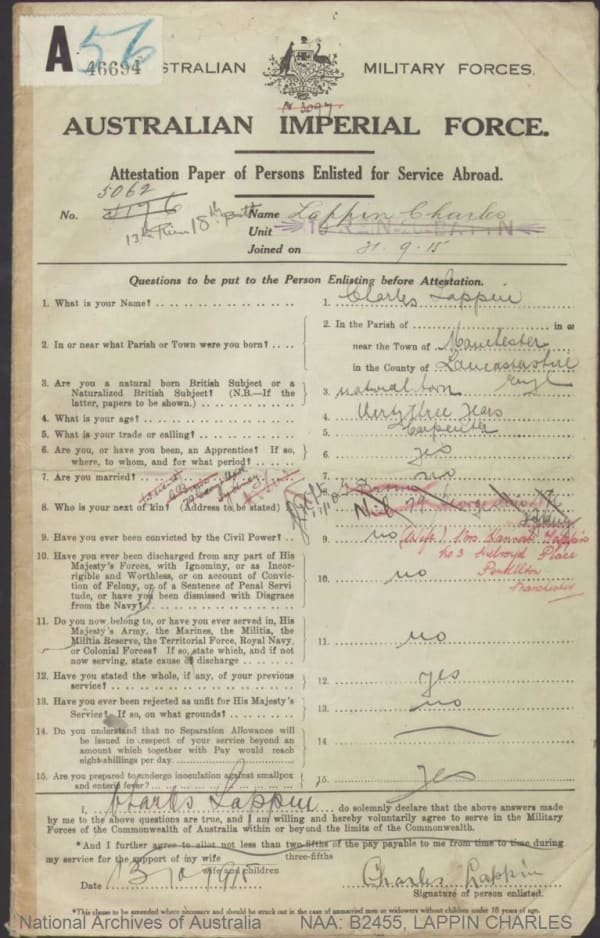 A 56
46694
AUSTRALIAN MILITARY FORCES.
AUSTRALIAN IMPERIAL FORCE.
Attestation Paper of Persons Enlisted for Service Abroad.
5062
No. Name Lappin Charles
13th Rein 18th Battn Unit
Joined on 21.9.15
Questions to be put to the Person Enlisting before Attestation.
1. What is your Name? 1. Charles Lappin
2. In or near what Parish or Town were you born? 2. In the Parish of in or
near the Town of Manchester
in the County of Lancastshire
Engl
3. Are you a natural born British Subject or a
Naturalized British Subject? (N.B.—If the
latter, papers to be shown.) 3. natural born
4. What is your age? 4. thirty three years
5. What is your trade or calling? 5. Carpenter
6. Are you, or have you been, an Apprentice? If so,
where, to whom, and for what period? 6. yes
7. Are you married? 7. no
8. Who is your next of kin? (Address to be stated)
(Wife) Mrs. Hannah Lappin
No 3 Place
Manchester
9. Have you ever been convicted by the Civil Power? 9. no
10. Have you ever been discharged from any part of His
Majesty's Forces, with Ignominy, or as Incor-
rigible and Worthless, or on account of Convic-
tion of Felony, or of a Sentence of Penal Servi-
tude, or have you been dismissed with Disgrace
from the Navy? 10. no
11. Do you now belong to, or have you ever served in, His
Majesty's Army, the Marines, the Militia, the
Militia Reserve, the Territorial Force, Royal Navy,
or Colonial Forces? If so, state which, and if not
now serving, state cause of discharge 11. no
12. Have you stated the whole, if any, of your previous
service? 12. yes
13. Have you ever been rejected as unfit for His Majesty's
Service? If so, on what grounds? 13. no
14. Do you understand that no Separation Allowance will
be issued in respect of your service beyond an
amount which together with Pay would reach
eight shillings per day. 14.
15. Are you prepared to undergo inoculation against smallpox
and enteric fever? 15. Yes
I, Charles Lappin do solemnly declare that the above answers made
by me to the above questions are true, and I am willing and hereby voluntarily agree to serve in the Military
Forces of the Commonwealth of Australia within or beyond the limits of the Commonwealth.
*And I further agree to allot not less than two-fifths of the pay payable to me from time to time during
three-fifths
my service for the support of my wife
wife and children
Date Charles Lappin
Signature of person enlisted.
*This clause to be amended where necessary and should be struck out in the case of unmarried men or widowers without children under 18 years of age.
National Archives of Australia NAA: B2455, LAPPIN CHARLES